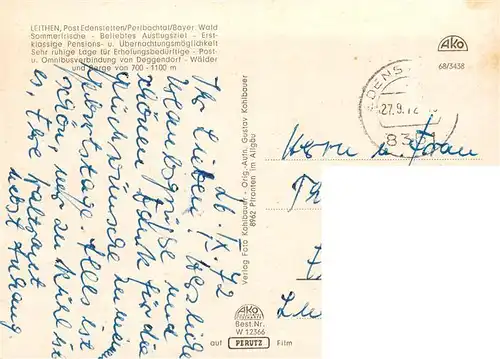 LEITHEN, Post Edenstetten/Perlbachtal/Bayer. Wald
Sommerfrische - Beliebtes Ausflugsziel - Erst-
klassige Pensions- u. Übernachtungsmöglichkeit
Sehr ruhige Lage für Erholungsbedürftige - Post-
u. Omnibusverbindung von Deggendorf - Wälder
und Berge von 700-1100 m
AKO
68/3438
EDENS
27.9.72
Herrn u. Frau
26. IX. 72
Ihr Lieben!
Urlaubsgrüße und
schönen Dank für die
Alles ist
schön, nur zu kühl ist
es. Eure Waltraut
nebst Anhang.
Verlag Foto Kohlbauer - Orig.-Aufn. Gustav Kohlbauer
8962 Pfronten im Allgäu
AKO
Best.Nr.
W 12366
auf PERUTZ Film